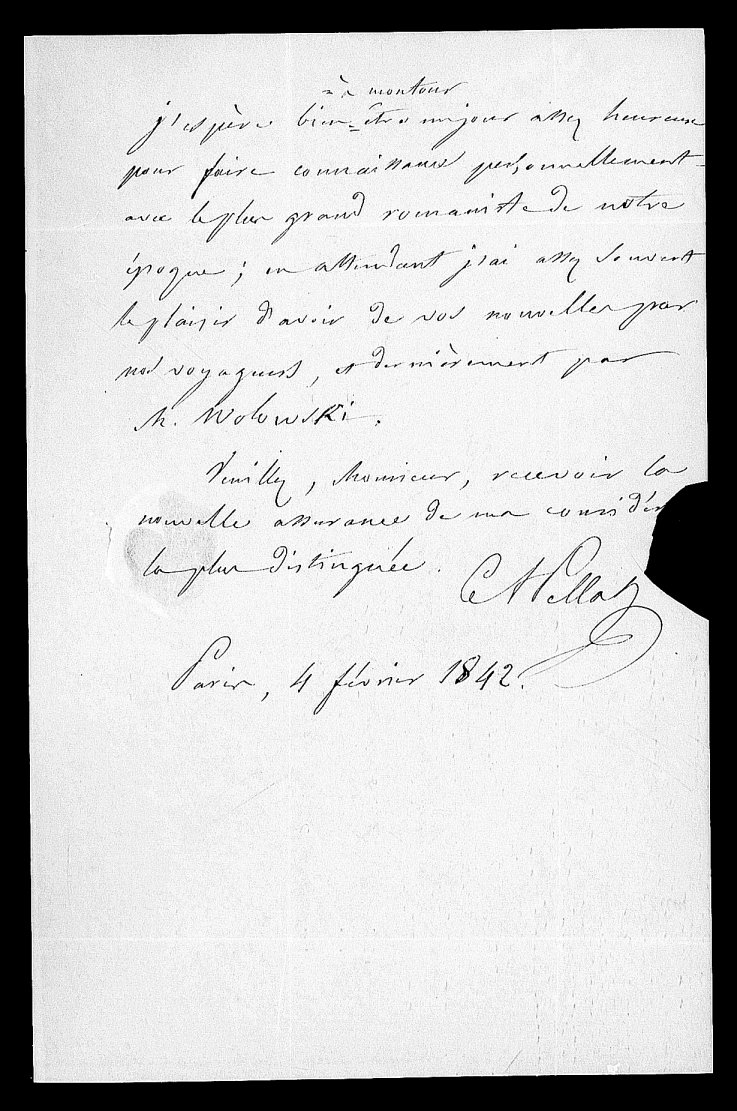 à montour
j'espère bien être un jour assez heureux
pour faire connaissance personnellement
avec le plus grand romaniste de notre
époque ; en attendant j'ai assez souvent
le plaisir d'avoir de vos nouvelles par
nos voyageurs, et dernièrement par
M. Wolowski.
Veuillez, Monsieur, recevoir la
nouvelle assurance de ma considér
la plus distinguée. CA Pellat
Paris, 4 février 1842.